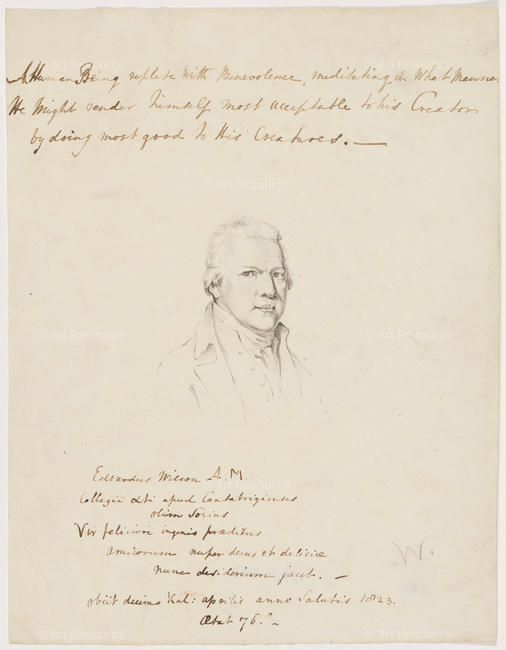 A Human Being replete with Benevolence, meditating in What Manner
He Might render himself most acceptable to his Creator
by doing most good to His Creatures. —
© Art Resource
© Art Resource
© Art Resource
© Art Resource
Edvardus Wilson A.M.
Collegii Xti apud Cantabrigienses
olim Socius
Vir feliciori ingenio præditus
amicorum nuper decus et deliciæ
nunc desiderium jacet. —
W.
obiit decimo Kal: aprilis anno Salutis 1823.
Ætat 76.° —